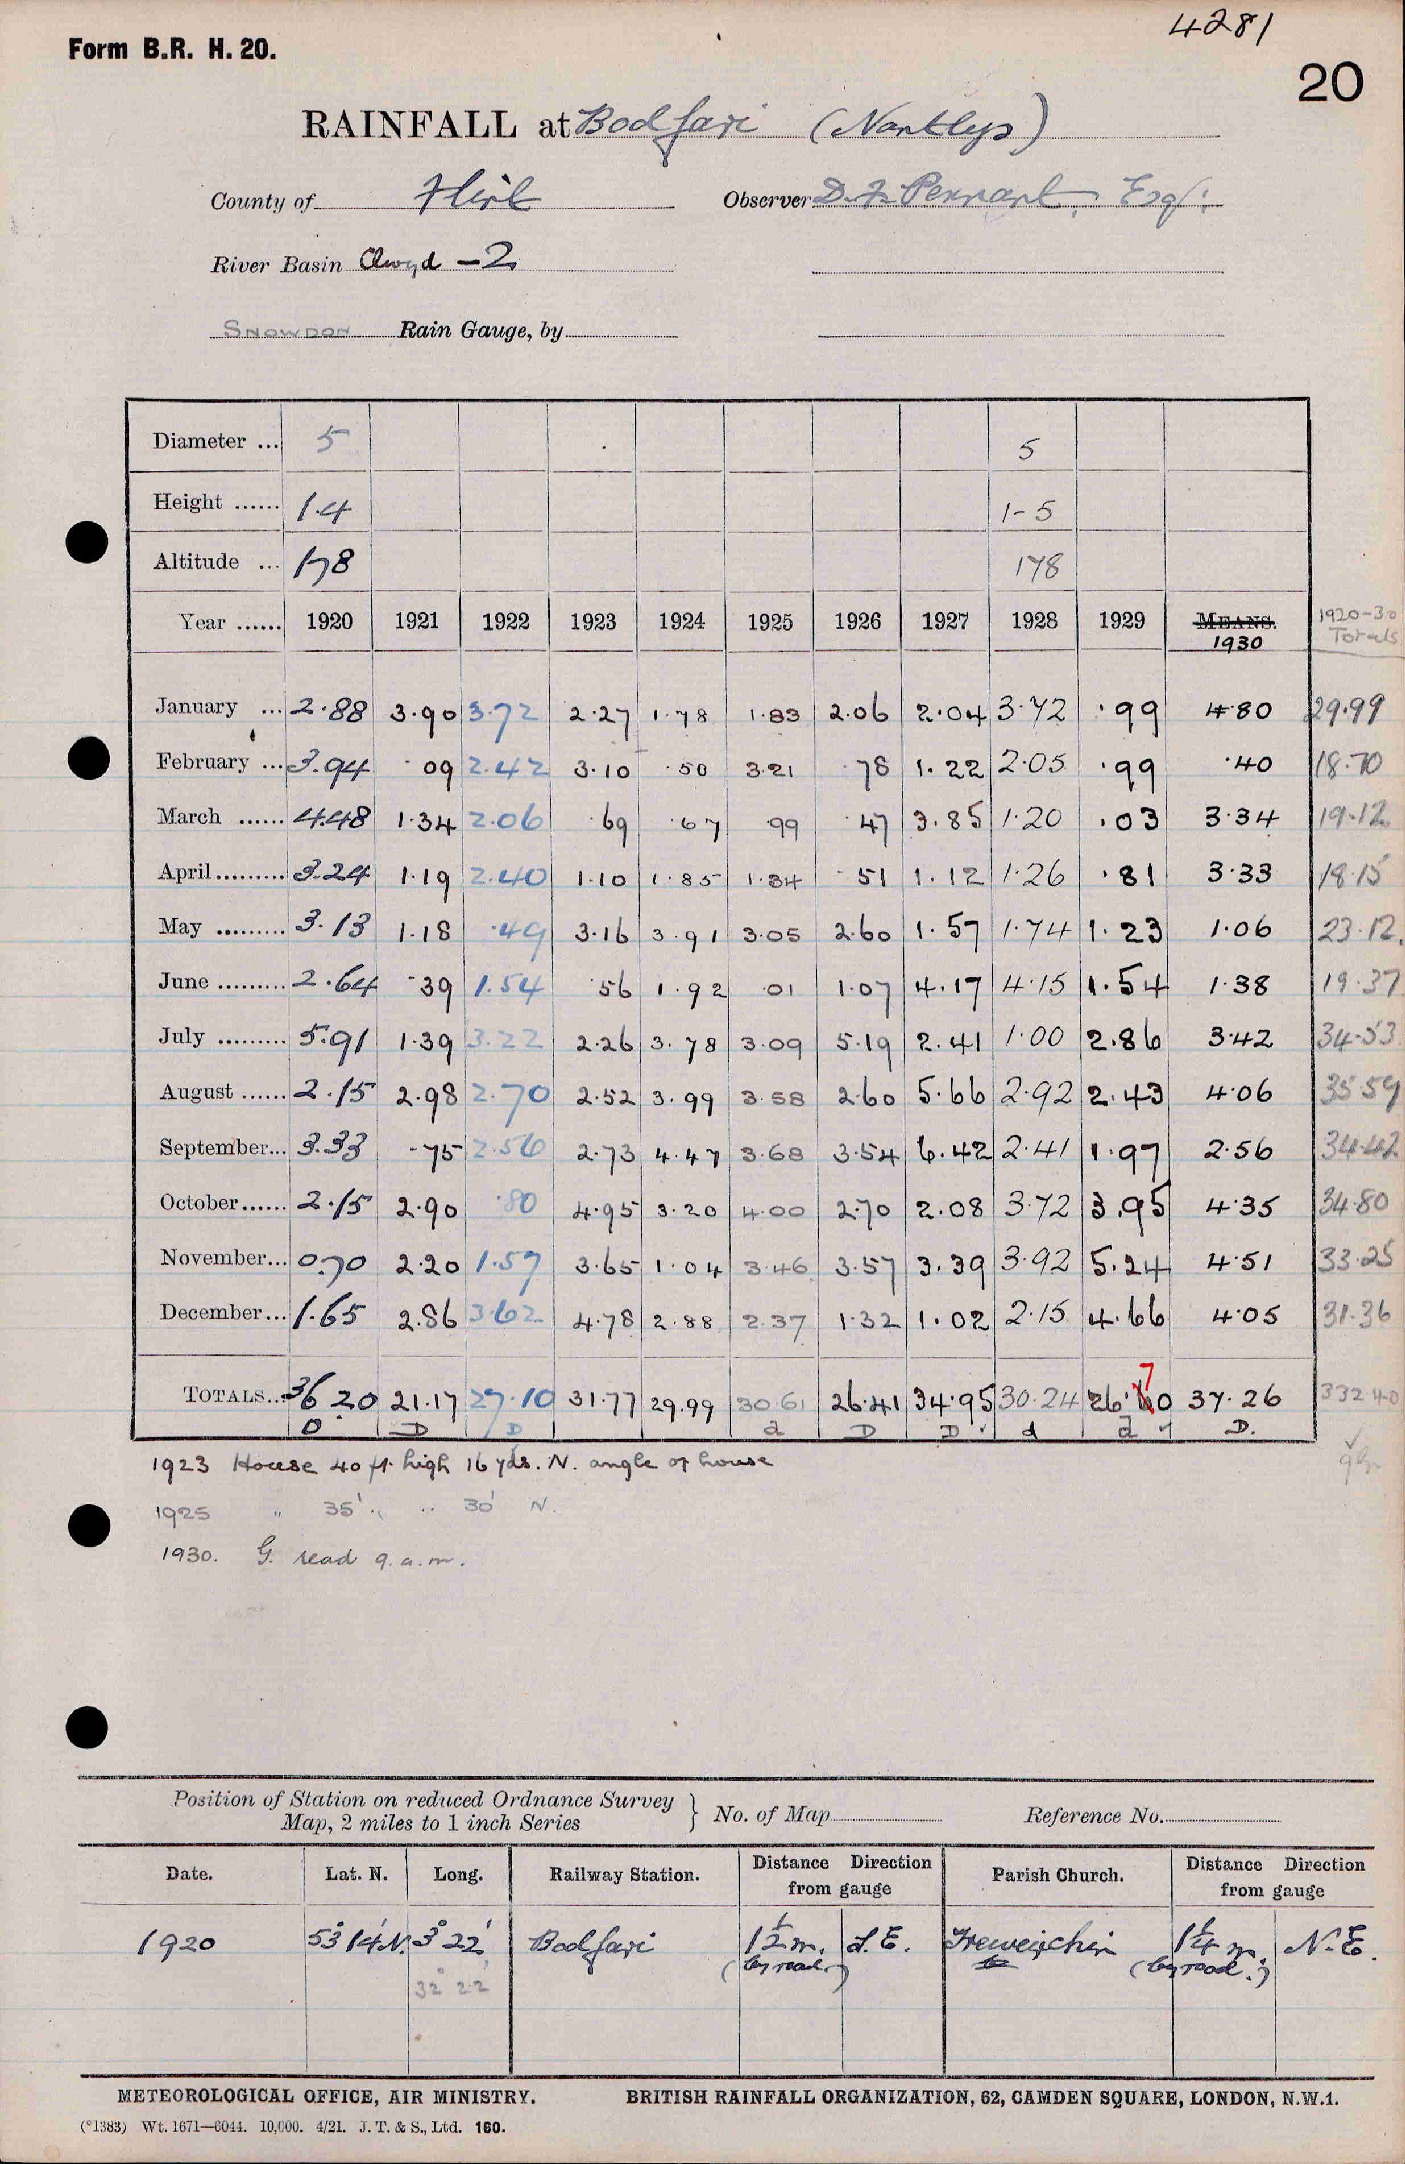 4281
Form B.R. H. 20.
20
RAINFALL at Bodfari (Nantlys)
County of Flint Observer D. F. Pennant, Esqr:
River Basin Clwyd - 2
SNOWDON Rain Gauge, by
Diameter ... 5 5
Height ...... 1.4 1-5
Altitude ... 178 178
Year ...... 1920 1921 1922 1923 1924 1925 1926 1927 1928 1929 MEANS. 1930 1920-30 Totals
January ... 2.88 3.90 3.72 2.27 1.78 1.83 2.06 2.04 3.72 .99 4.80 29.99
February ... 3.94 .09 2.42 3.10 .50 3.21 .78 1.22 2.05 .99 .40 18.70
March ...... 4.48 1.34 2.06 .69 .67 .99 .47 3.85 1.20 .03 3.34 19.12
April ......... 3.24 1.19 2.40 1.10 1.85 1.34 .51 1.12 1.26 .81 3.33 18.15
May ......... 3.13 1.18 .49 3.16 3.91 3.05 2.60 1.57 1.74 1.23 1.06 23.12
June ......... 2.64 .39 1.54 .56 1.92 .01 1.07 4.17 4.15 1.54 1.38 19.37
July ......... 5.91 1.39 3.22 2.26 3.78 3.09 5.19 2.41 1.00 2.86 3.42 34.53
August ...... 2.15 2.98 2.70 2.52 3.99 3.58 2.60 5.66 2.92 2.43 4.06 35.59
September... 3.33 .75 2.56 2.73 4.47 3.68 3.54 6.42 2.41 1.97 2.56 34.42
October...... 2.15 2.90 .80 4.95 3.20 4.00 2.70 2.08 3.72 3.95 4.35 34.80
November... 0.70 2.20 1.57 3.65 1.04 3.46 3.57 3.39 3.92 5.24 4.51 33.25
December... 1.65 2.86 3.62 4.78 2.88 2.37 1.32 1.02 2.15 4.66 4.05 31.36
7
TOTALS... 36.20 21.17 27.10 31.77 29.99 30.61 26.41 34.95 30.24 26.60 37.26 332.40
D D D a D D d d D.
1923 House 40 ft. high 16 yds. N. angle of house
1925 " 35' " .. 30' N.
1930. G. read 9 a.m.
Position of Station on reduced Ordnance Survey
Map, 2 miles to 1 inch Series } No. of Map Reference No.
Date. Lat. N. Long. Railway Station. Distance Direction from gauge Parish Church. Distance Direction from gauge
1920 53° 14' N. 3° 22' Bodfari 1½ m. S.E. 1¼ m. N.E.
(by road.) (by road.)
32° 22'
METEOROLOGICAL OFFICE, AIR MINISTRY. BRITISH RAINFALL ORGANIZATION, 62, CAMDEN SQUARE, LONDON, N.W.1.
(*1383) Wt. 1671—6044. 10,000. 4/21. J. T. & S., Ltd. 160.